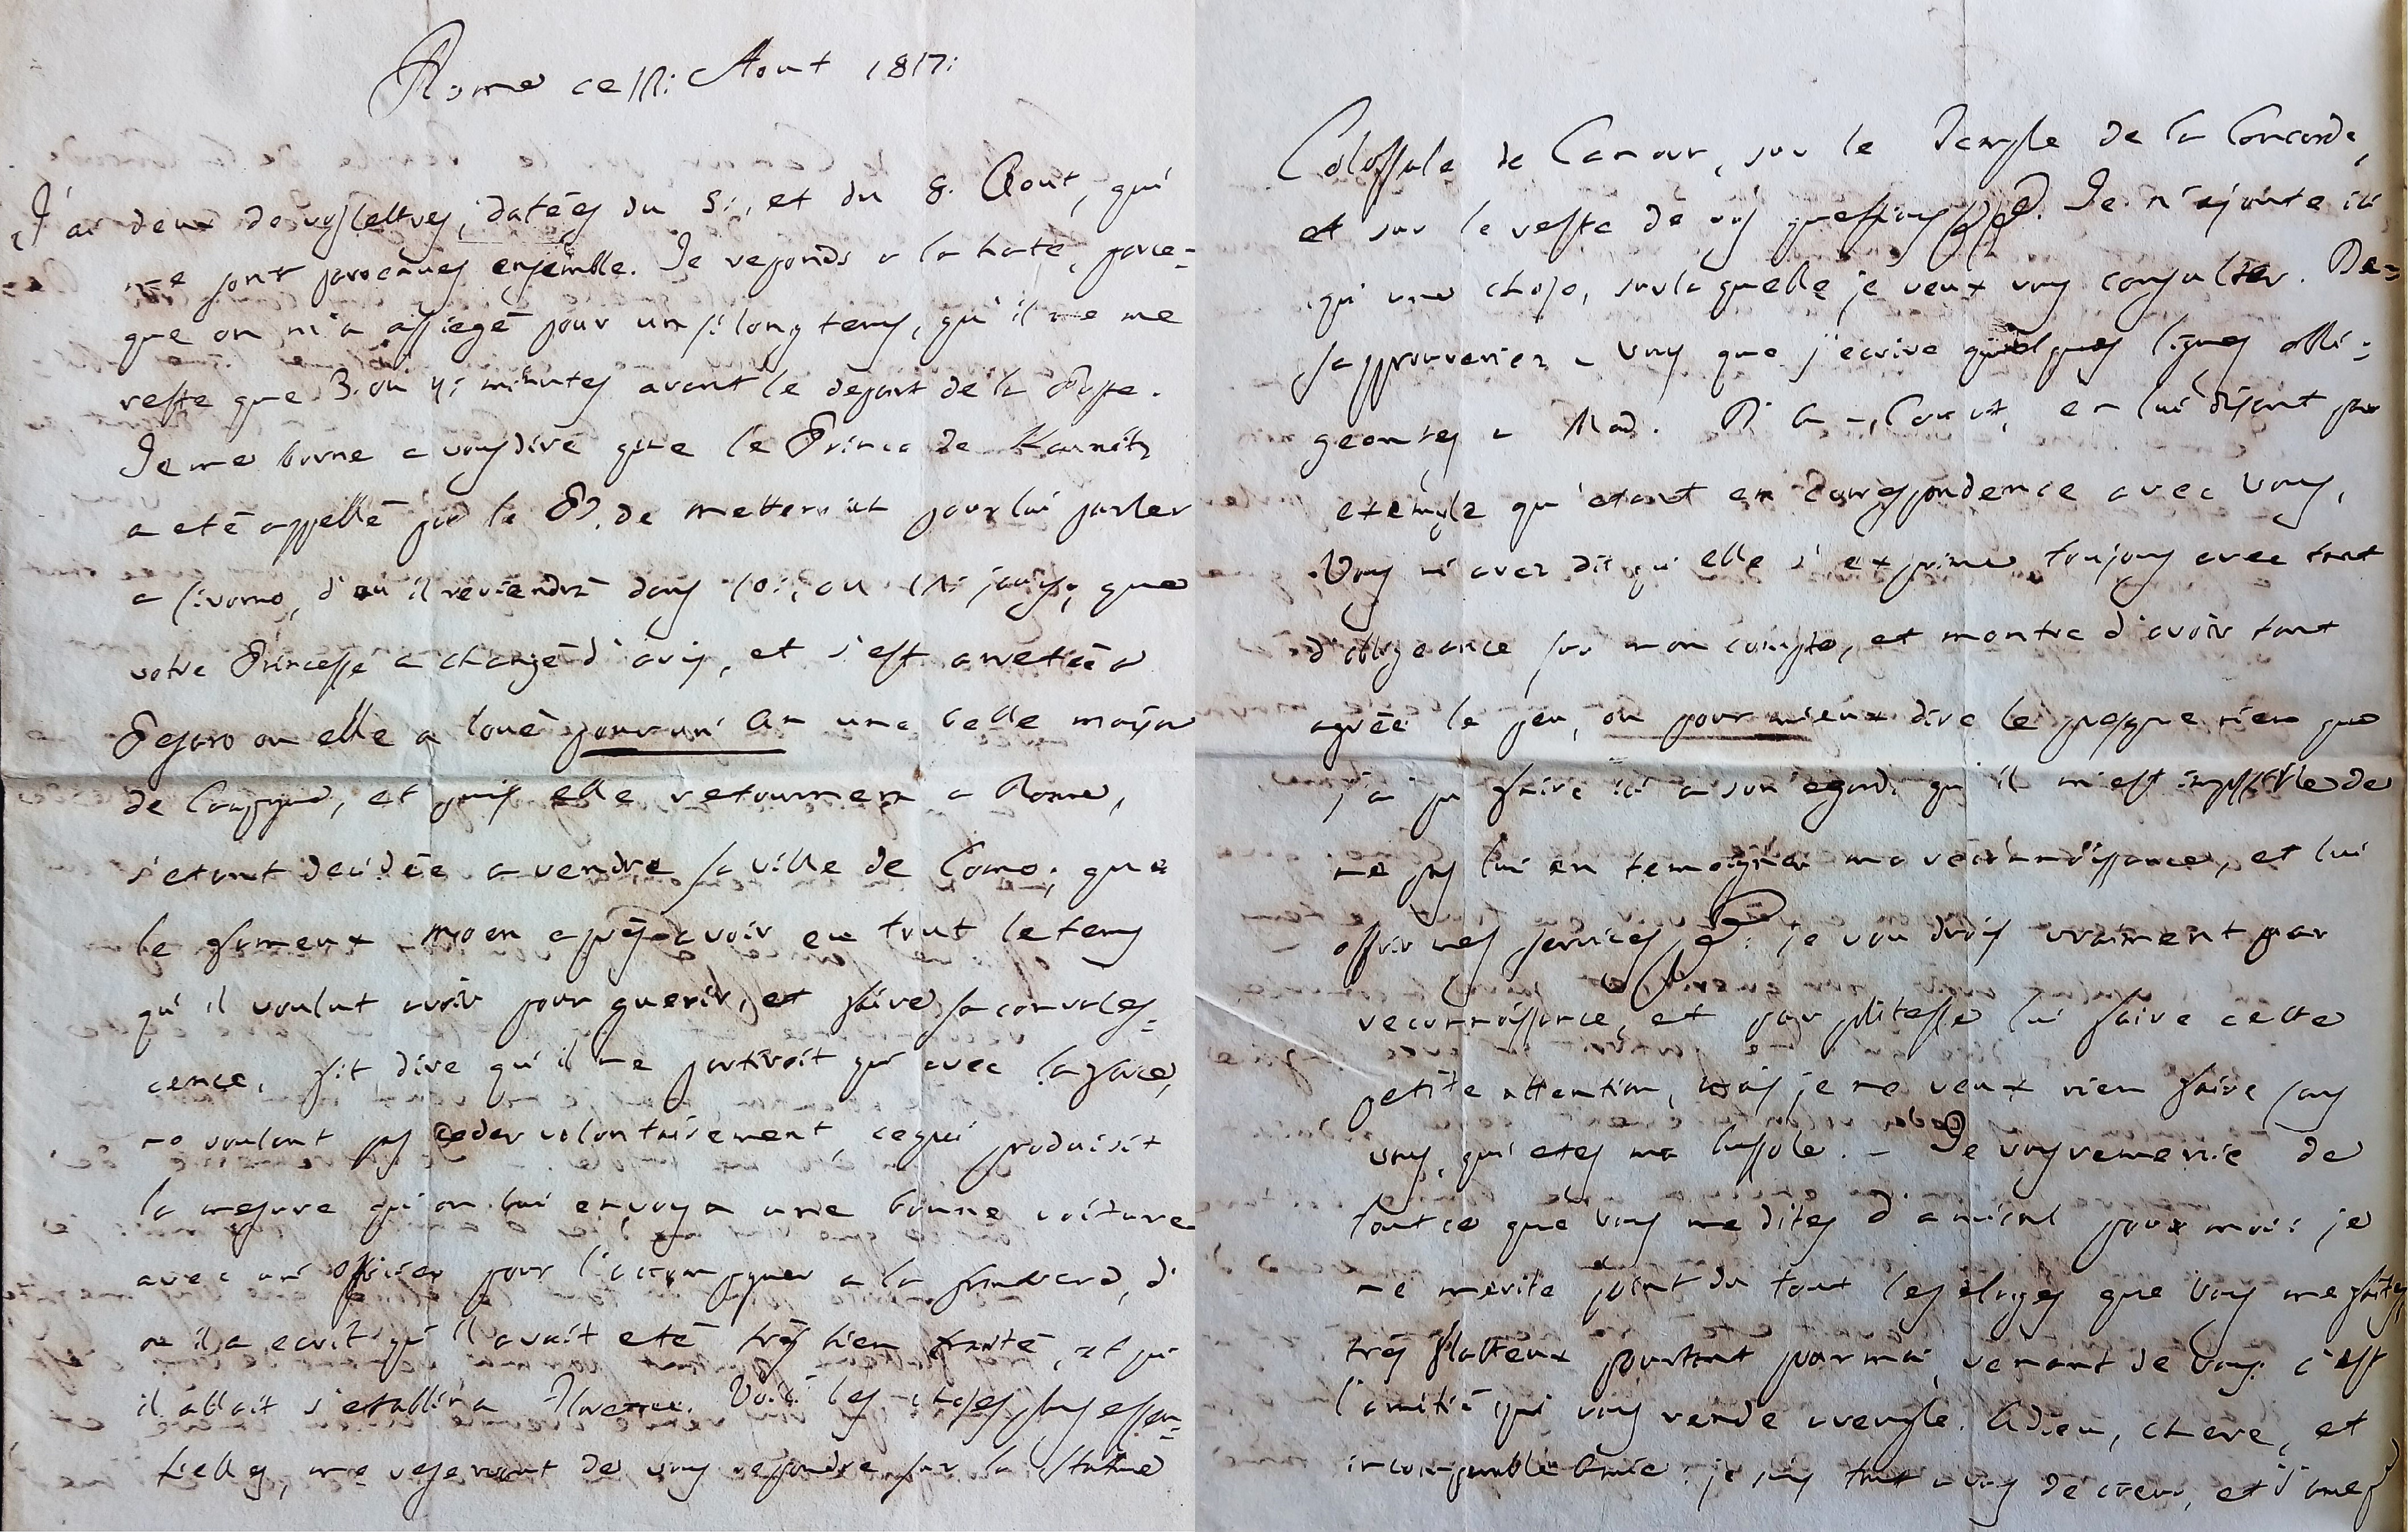 Rome ce Aout 1817:
J'ai deux de vos lettres, datées du 5:, et du 8. Aout, qui
me sont parvenues ensemble. Je reponds a la hate, parce=
que on m'a assiegé pour un si long tems, qu'il ne me
reste que 3. ou 4: minutes avant le depart de la Poste.
Je me borne a vous dire que le Prince de Kaunitz
a eté appellé par le P. de Metternich pour lui parler
a Livorno, d'ou il reviendra dans 10:, ou jours; que
votre Princesse a changé d'avis, et s'est arretée a
Pesaro ou elle a loué pour un An une belle maison
de Campagne, et puis elle retournera a Rome,
s'etant decidée a vendre sa ville de Como; que
le fameux apres avoir eu tout le tems
qu'il voulut avoir pour guerir, et faire sa convales=
cence, fit dire qu'il ne partiroit qu'avec la force,
ne voulant pas ceder volontairement, ce qui produisit
la mesure qu'on lui envoya une bonne voiture
avec un officier pour l'accompagner a la frontiere, d'
ou il a ecrit qu'il avait eté très bien traité, et qu'
il allait s'etablir a Florence. Voici les choses plus essen=
tielles, me reservant de vous repondre sur la Statue
Colossale de Canova, sur le Temple de la Concorde,
et sur le reste de vos questions &c. Je n'ajoute ici
qu'une chose, sur la quelle je veux vous consulter. De=
sapprouveriez - vous que j'ecrive quelques lignes obli=
geantes a Mad. en lui disant par
exemple qu'etant en correspondence avec vous,
Vous m'avez dit qu'elle s'exprime toujours avec tant
d'obligeance sur mon compte, et montre d'avoir tant
agréé le peu, ou pour mieux dire le presque rien que
j'ai pu faire ici a son egard, qu'il m'est impossible de
ne pas lui en temoigner ma reconnoissance, et lui
offrir mes services &c: je voudrois vraiment par
reconnoissance, et par politesse lui faire cette
petite attention, mais je ne veux rien faire sans
vous, qui etes ma bussole. - Je vous remercie de
tout ce que vous me dites d'amical pour moi: je
ne merite point du tout les eloges que vous me faites
très flatteux pourtant pour moi, venant de vous: c'est
l'amitié qui vous rende aveugle. Adieu, chere, et
incomparable Amie: je suis tout a vous de cœur, et d'ame